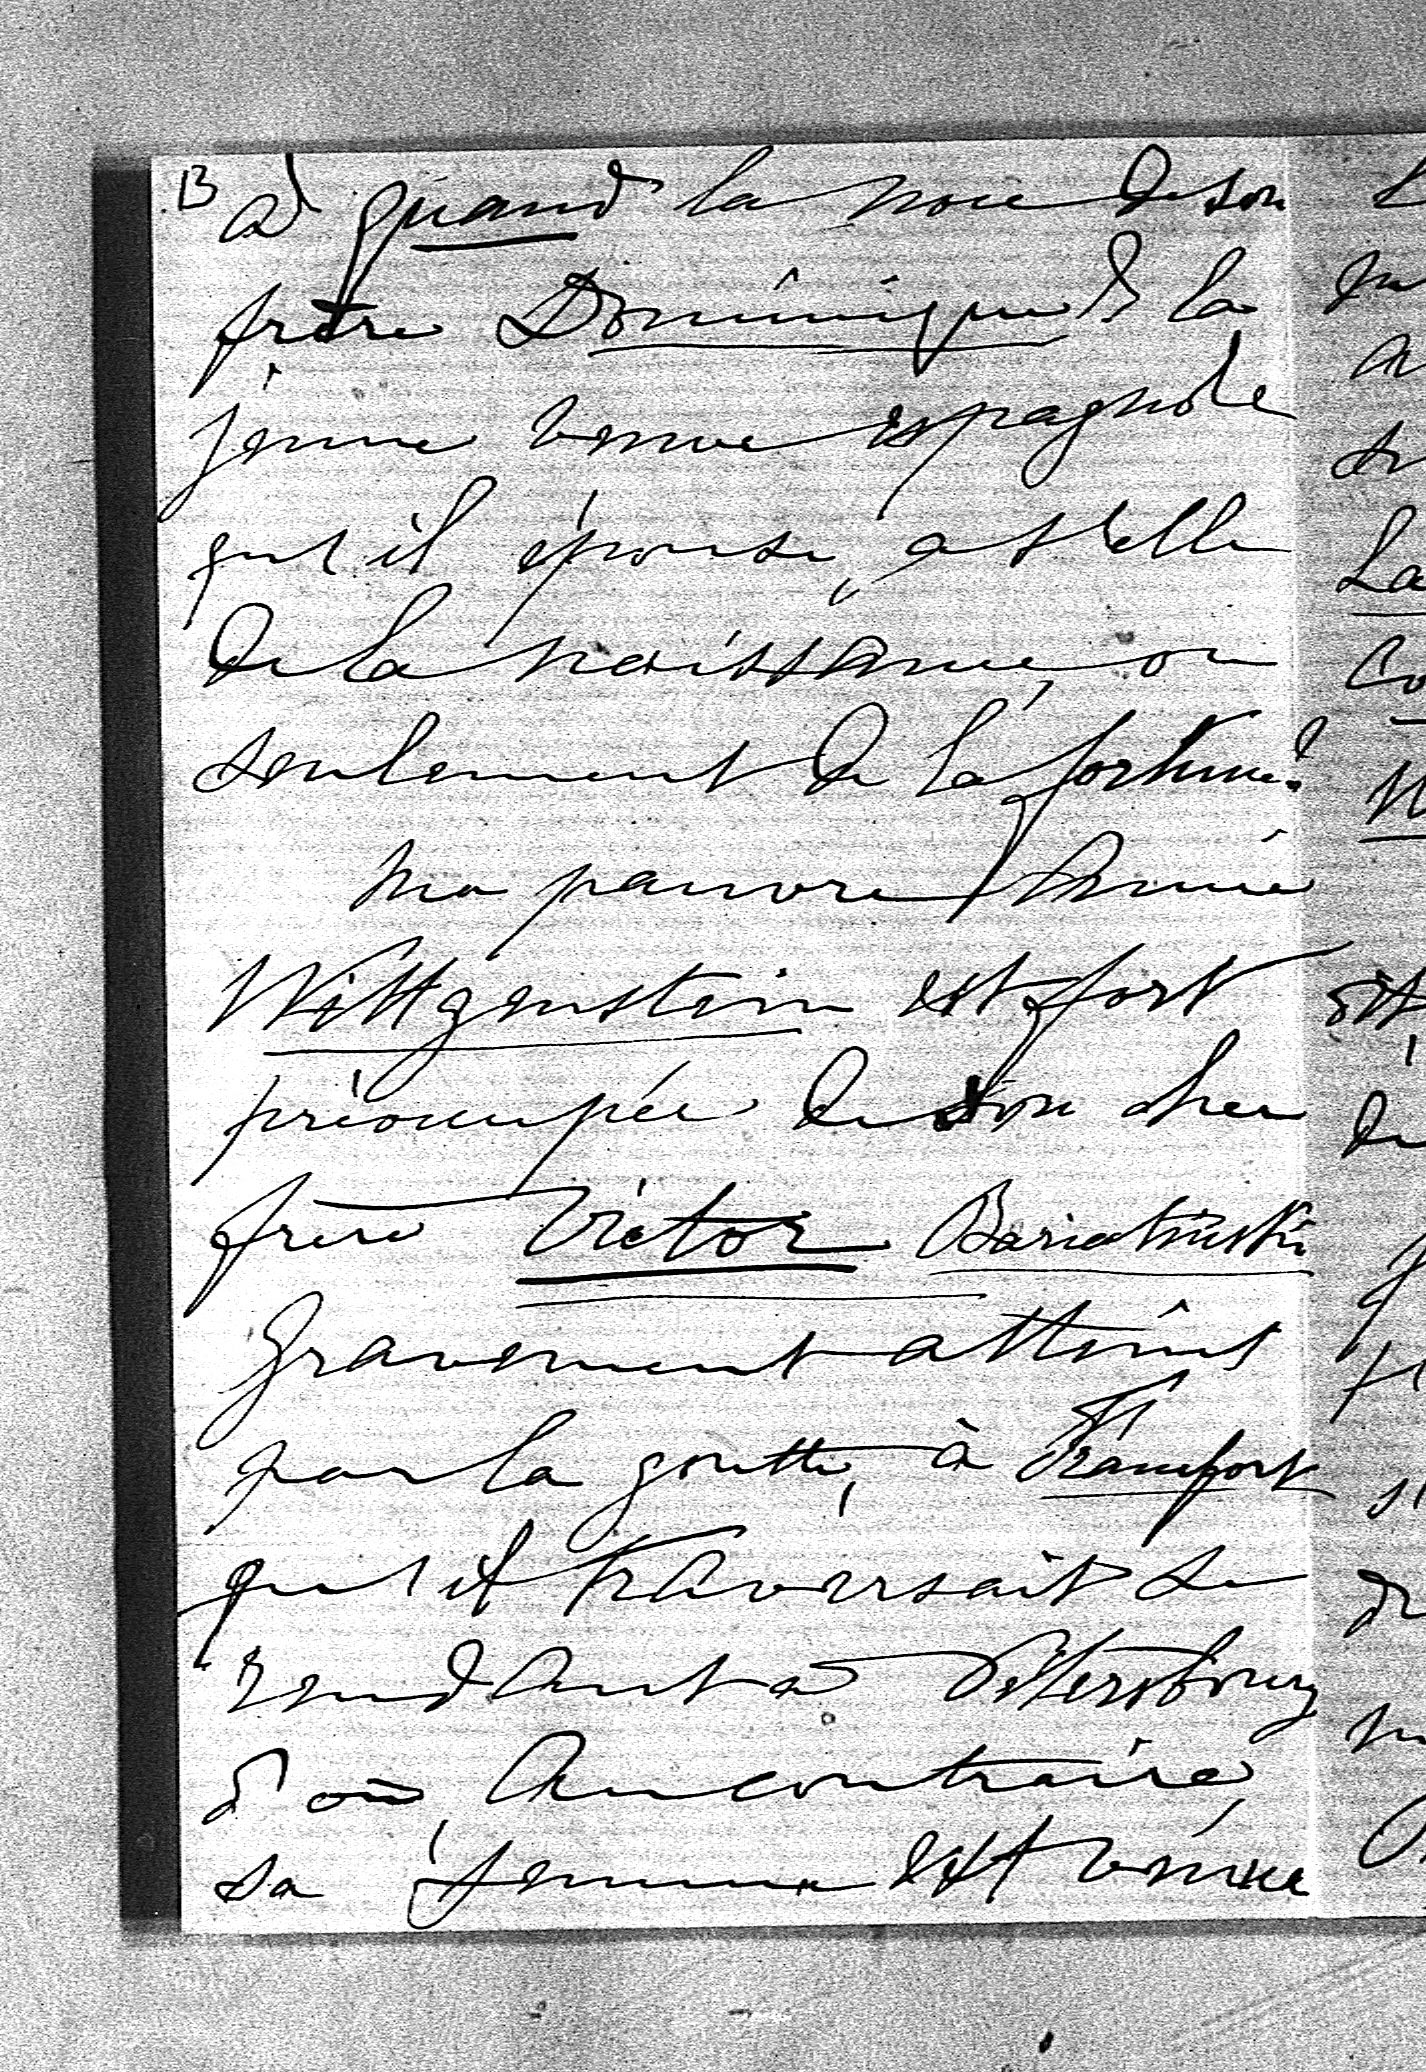 13
à quand la noce de son
frère Dominique & la
jeune veuve espagnole
qu'il épouse, a t'elle
de la naissance, ou
seulement de la fortune?
Ma pauvre Amie
Wittgenstein est fort
préoccupée de son cher
frère Victor Bariatinski
gravement atteint
par la goutte, à Francfort
qu'il traversait se
rendant à Pétersbourg
d'où, Au contraire,
sa femme est venue